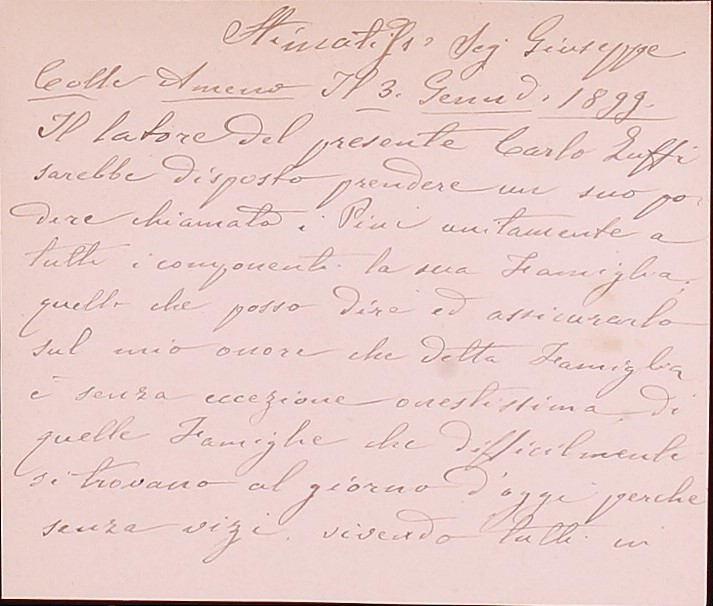 Stimatiss° Sig Giuseppe
Colle Ameno Il 3. Genn° 1899.
Il latore del presente Carlo Zuffi
sarebbe disposto prendere un suo po=
dere chiamato i Pini unitamente a
tutti i componenti la sua Famiglia,
quello che posso dire ed assicurarlo
sul mio onore che detta Famiglia
è senza eccezione onestissima, di
quelle Famiglie che difficilmente
si trovano al giorno d'oggi perche
senza vizi. vivendo tutti in